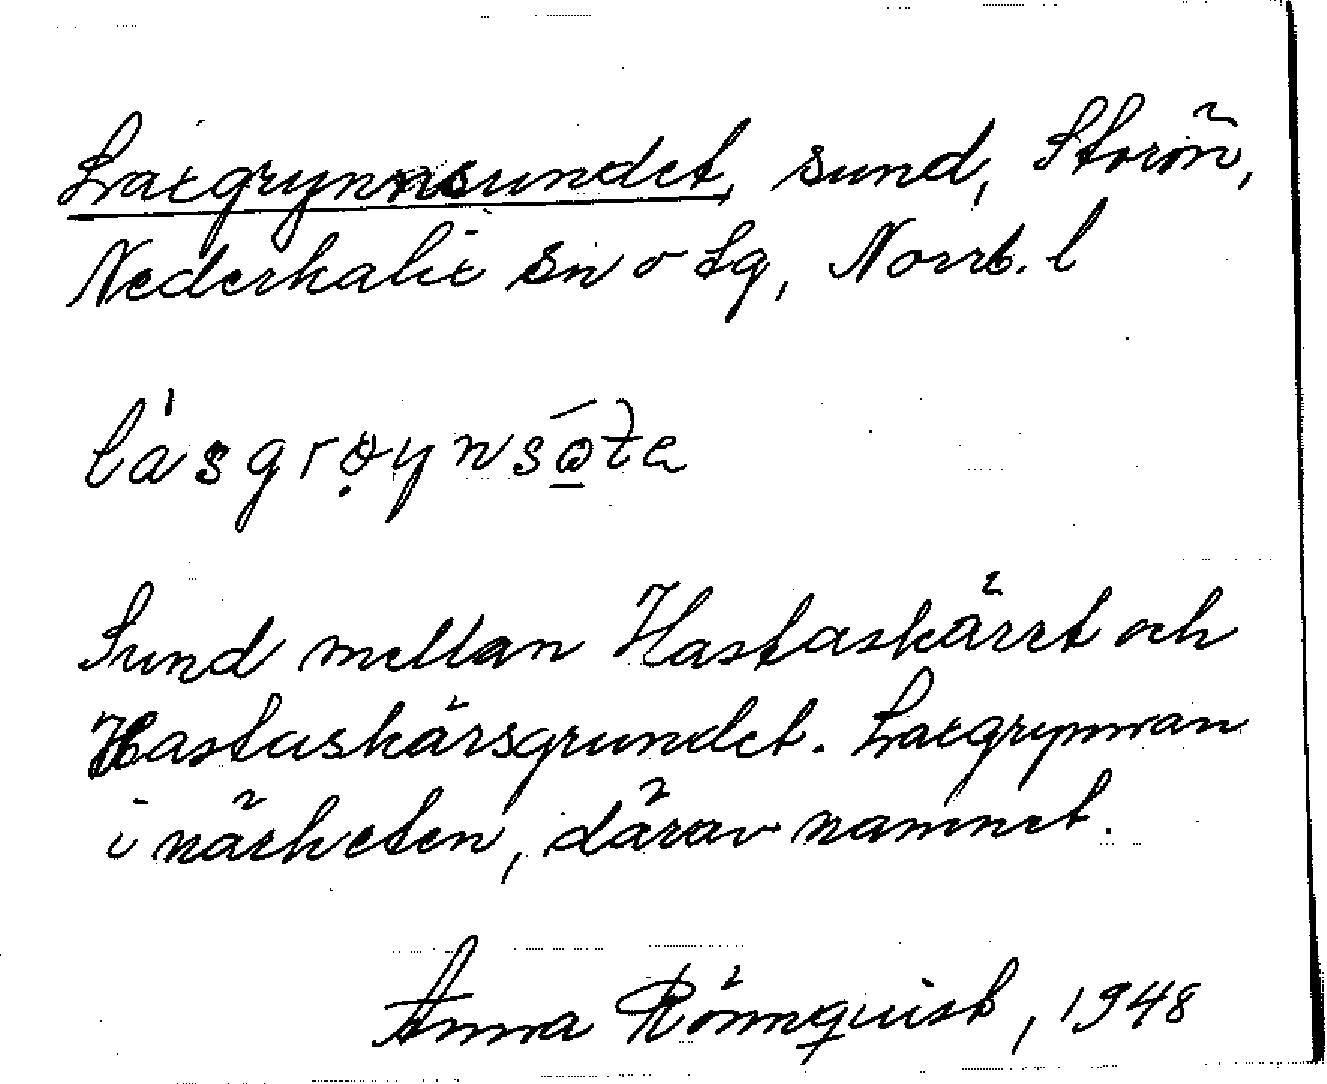 Laxgrynnsundet, sund, Storön,
Nederkalix sn o tg, Norrb. l
Sund mellan Hastaskäret och
Hastaskärsgrundet. Laxgrynnan
i närheten, därav namnet.
Anna Rönnquist, 1948